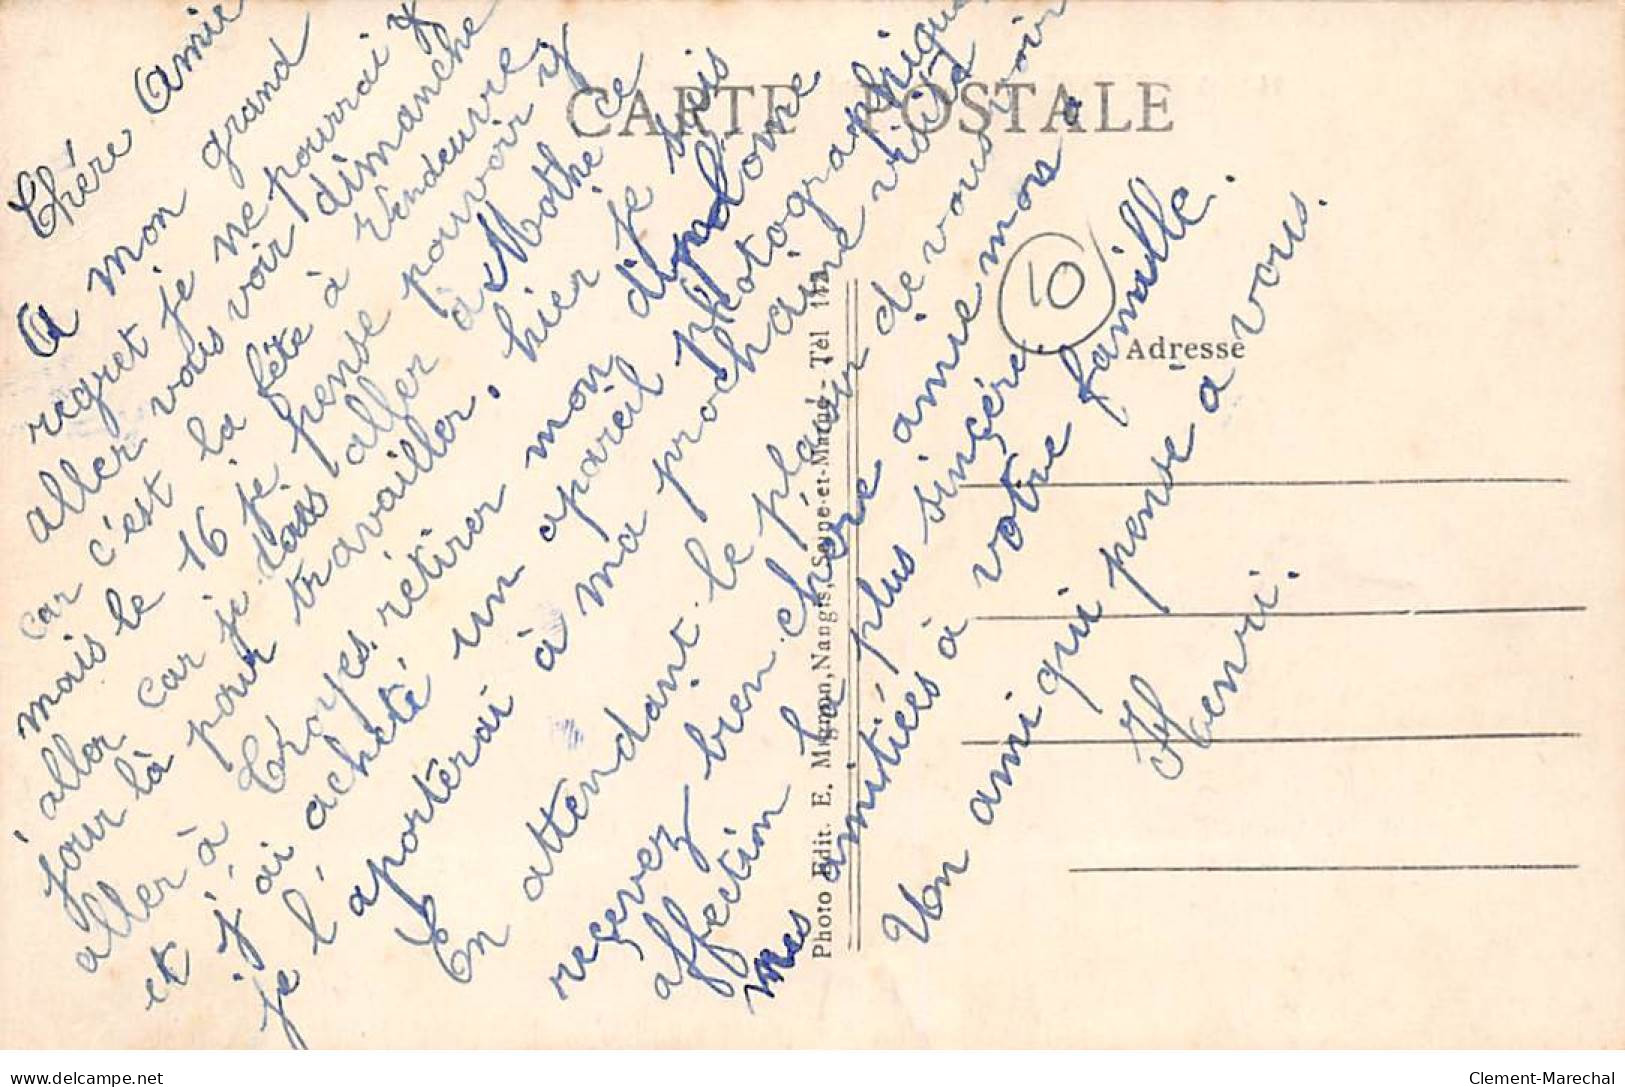 Chére Amie
A mon grand
regret je ne pourrai y
aller vous voir dimanche
car c'est la fête à Vendeuvre
mais le 16 je pense pouvoir y
aller car je vais aller à Mothe ce
jour là pour travailler, hier je suis
aller à Troyes rétirer mon diplome
et j'ai acheté un apareil photographique
je l'aporterai à ma prochaine visite
En attendant le plaisir de vous voir
reçevez bien chère amie mon
affection la plus sincère
mes amitiées à votre famille.
Un ami qui pense à vous.
Henri.
CARTE POSTALE
10
Adresse
Photo Edit. E. Mignon, Nangis, Seine-et-Marne - Tél
delcampe.net
Clement-Marechal